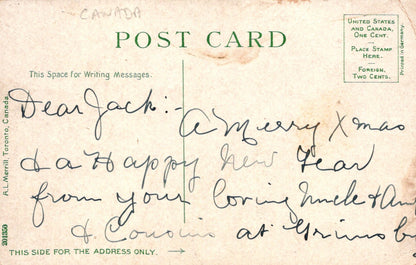 CANADA
POST CARD
UNITED STATES
AND CANADA,
ONE CENT.
PLACE STAMP
HERE.
FOREIGN,
TWO CENTS.
Printed in Germany.
This Space for Writing Messages.
Dear Jack:-
A Merry Xmas
& a Happy New Year
from your loving Uncle & Aun
& Cousins at Grimsb
A.L. Merrill, Toronto, Canada.
THIS SIDE FOR THE ADDRESS ONLY. →